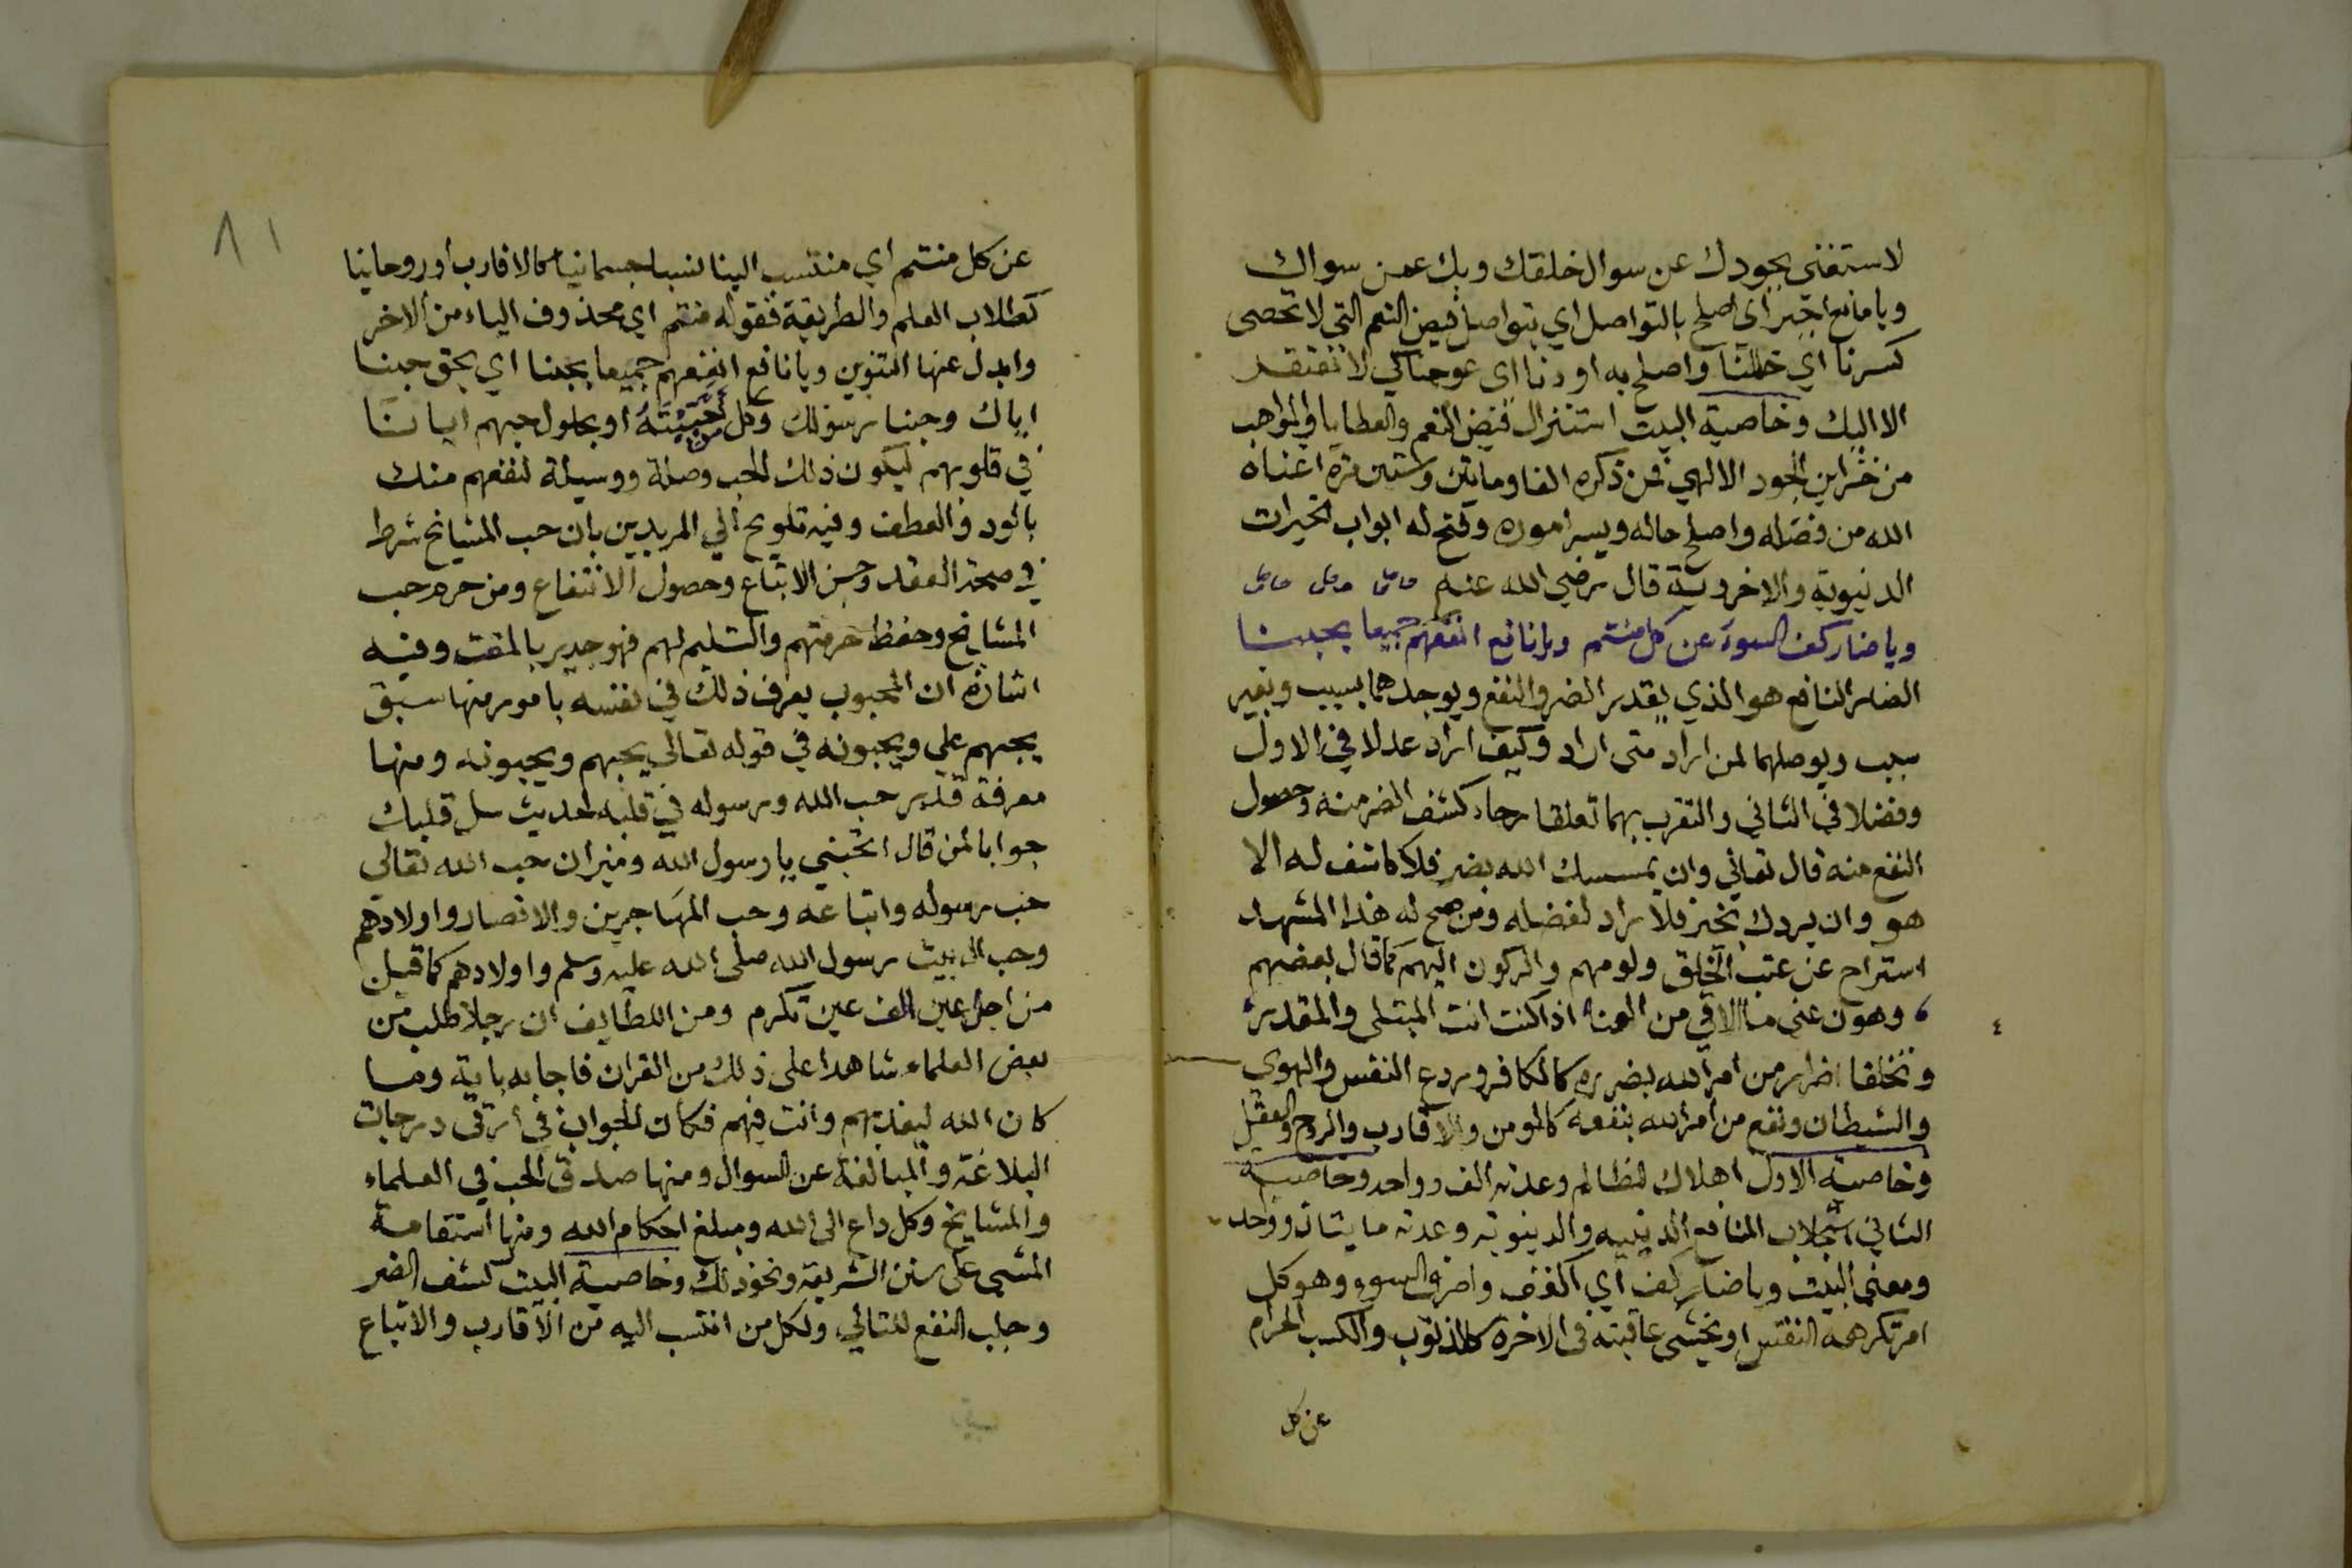 لاستغنى بجودك عن سوال خلقك وبك عمن سواك
ويا مانع اجبر اي اصلح بالتواصل اي بتواصل فيض النعم التي لا تحصى
كسرنا اي خللنا واصلح به اودنا اى عوجنا كي لا نفتقد
الا اليك وخاصية البيت استنزال فيض النعم والعطايا والمواهب
من خزاين الجود الالهي فمن ذكره الفا وماتين وستين مرة اغناه
الله من فضله واصلح حاله ويسر اموره وفتح له ابواب الخيرات
الدنيوية والاخروية قال رضي الله عنه
ويا ضار كف السوء عن كل منتم ويا نافع انفعهم جميعا بحبنا
الضار النافع هو الذي يقدر الضر والنفع ويوجدهما بسبب وبغير
سبب ويوصلهما لمن اراد متى اراد وكيف اراد عدلا في الاول
وفضلا في الثاني والتقرب بهما تعلقا رجاء كشف الضر منه وحصول
النفع منه قال تعالي وان يمسسك الله بضر فلا كاشف له الا
هو وان يردك بخير فلا راد لفضله ومن صح له هذا المشهد
استراح عن عتب الخلق ولومهم والركون اليهم كما قال بعضهم
وهون عني ما الاقي من العنا اذا كنت انت المبتلى والمقدر
وتخلقا اضرار من امر الله بضرره كالكافر وردع النفس والهوى
والشيطان ونفع من امر الله بنفعه كالمومن والاقارب والروح والعقل
وخاصية الاول اهلاك الظالم وعدته الف وواحد وخاصية
الثاني استجلاب المنافع الدينيه والدنيوية وعدته مايتان وواحد
ومعنى البيت ويا ضار كف اي اكفف واصرف السوء وهو كل
امر تكرهه النفس او تخشى عاقبته في الاخرة كالذنوب والكسب الحرام
عن كل
عن كل منتم اي منتسب الينا نسبا جسمانيا كالاقارب أو روحانيا
كطلاب العلم والطريقة فقوله منتم اي محذوف الياء من الاخر
وابدل عنها التنوين ويا نافع انفعهم جميعا بحبنا اي بحق حبنا
اياك وحبنا رسولك وكل من احببته او بحلول حبهم ايانا
في قلوبهم ليكون ذلك الحب وصلة ووسيلة لنفعهم منك
بالود والعطف وفيه تلويح الي المريدين بان حب المشايخ شرط
في صحة العقد وحسن الاتباع وحصول الانتفاع ومن حرم حب
المشايخ وحفظ حرمتهم والتسليم لهم فهو جدير بالمقت وفيه
اشارة ان المحبوب يعرف ذلك في نفسه بامور منها سبق
يحبهم على ويحبونه في قوله تعالي يحبهم ويحبونه ومنها
معرفة قدر حب الله ورسوله في قلبه لحديث سل قلبك
جوابا لمن قال اتحبني يا رسول الله وميزان حب الله تعالي
حب رسوله واتباعه وحب المهاجرين والانصار واولادهم
وحب ال بيت رسول الله صلى الله عليه وسلم واولادهم كما قيل
من اجل عين الف عين تكرم ومن اللطايف ان رجلا طلب من
بعض العلماء شاهدا على ذلك من القران فاجابه باية وما
كان الله ليعذبهم وانت فيهم فكان الجواب في ارقى درجات
البلاغة والمبالغة عن السوال ومنها صدق الحب في العلماء
والمشايخ وكل داع الى الله ومبلغ احكام الله ومنها استقامة
المشي على سنن الشريعة ونحو ذلك وخاصية البيت كشف الضر
وجلب النفع للتالي ولكل من انتسب اليه من الاقارب والاتباع